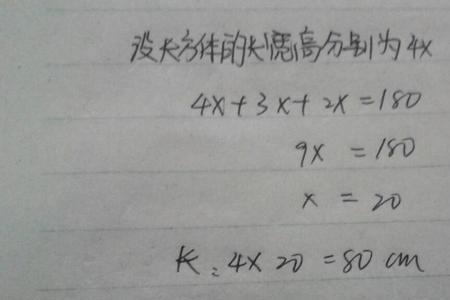 设长方体的长宽高分别为4x
4x+3x+2x=180
9x=180
x=20
长:4×20=80cm